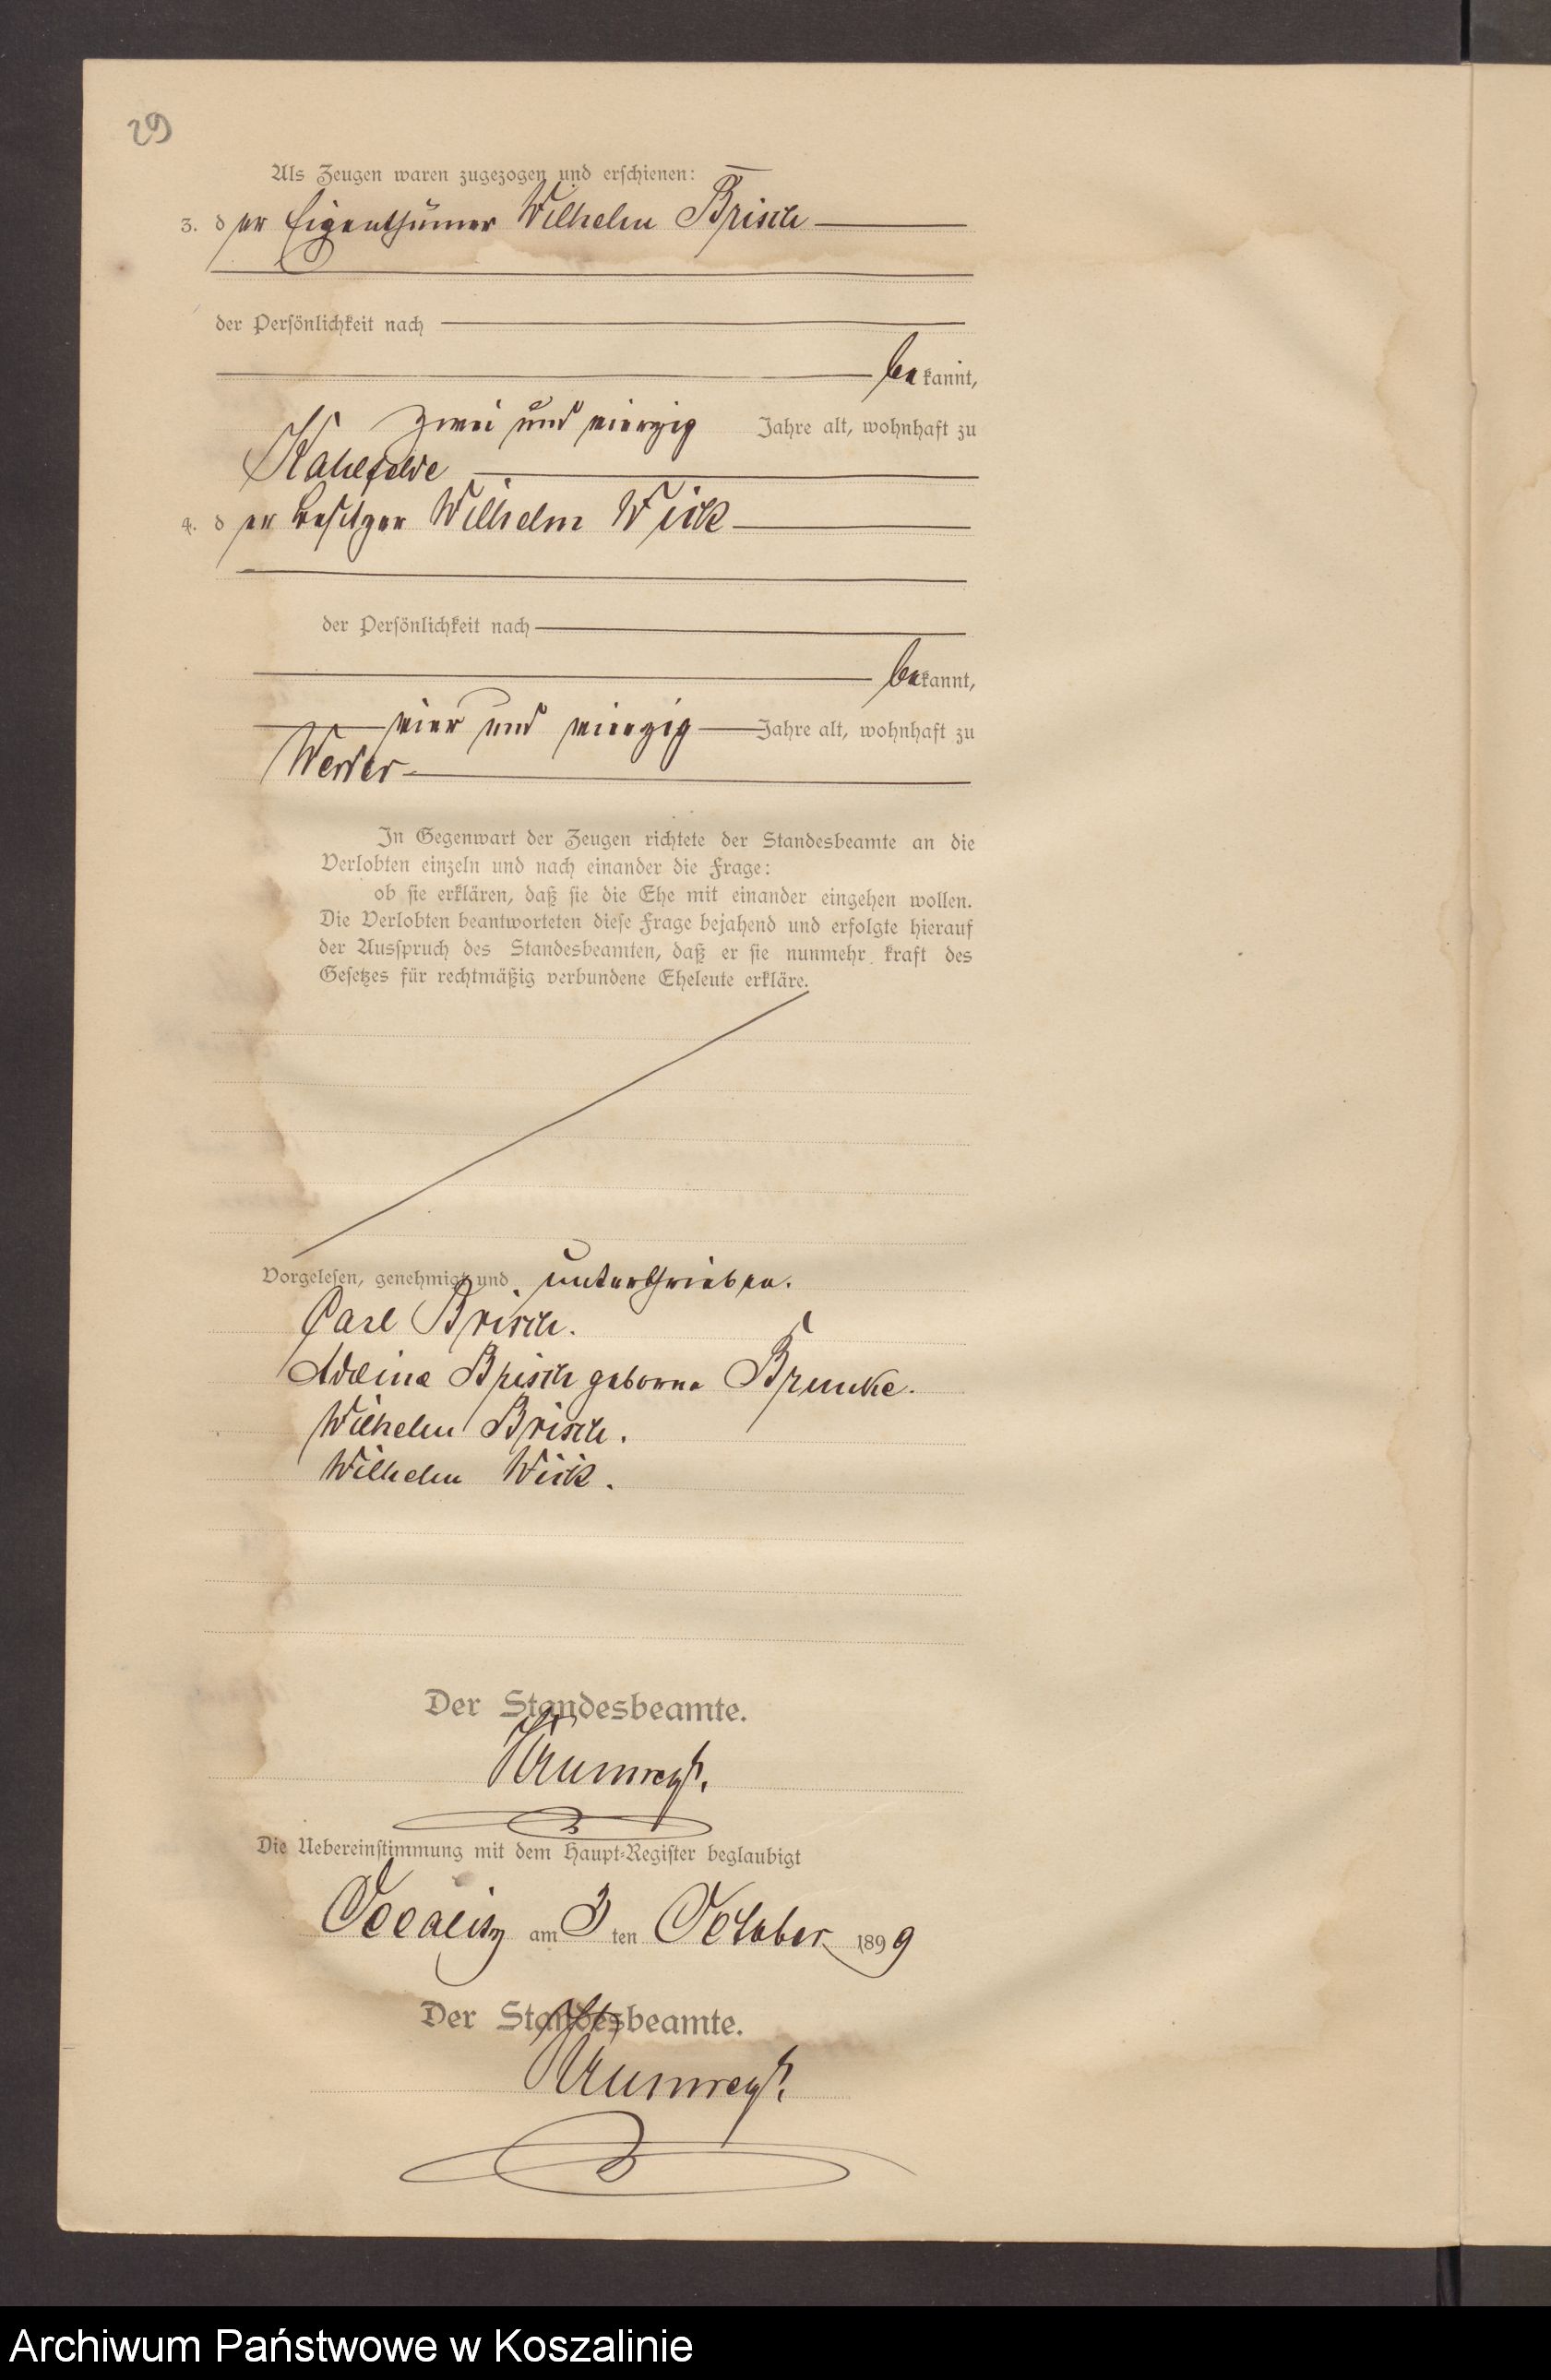 29
Als Zeugen waren zugezogen und erschienen:
3. der Eigenthümer Wilhelm Brisch
der Persönlichkeit nach
bekannt,
zwei und vierzig Jahre alt, wohnhaft zu
Kahlfelde
4. der Besitzer Wilhelm Wick
der Persönlichkeit nach
bekannt,
vier und vierzig Jahre alt, wohnhaft zu
Werder
In Gegenwart der Zeugen richtete der Standesbeamte an die
Verlobten einzeln und nach einander die Frage:
ob sie erklären, daß sie die Ehe mit einander eingehen wollen.
Die Verlobten beantworteten diese Frage bejahend und erfolgte hierauf
der Ausspruch des Standesbeamten, daß er sie nunmehr kraft des
Gesetzes für rechtmäßig verbundene Eheleute erkläre.
Vorgelesen, genehmigt und unterschrieben.
Carl Brisch.
Adeline Brisch geborne
Wilhelm Brisch.
Wilhelm Wick.
Der Standesbeamte.
Die Uebereinstimmung mit dem Haupt-Register beglaubigt
am 3 ten October 1899
Der Standesbeamte.
Archiwum Państwowe w Koszalinie